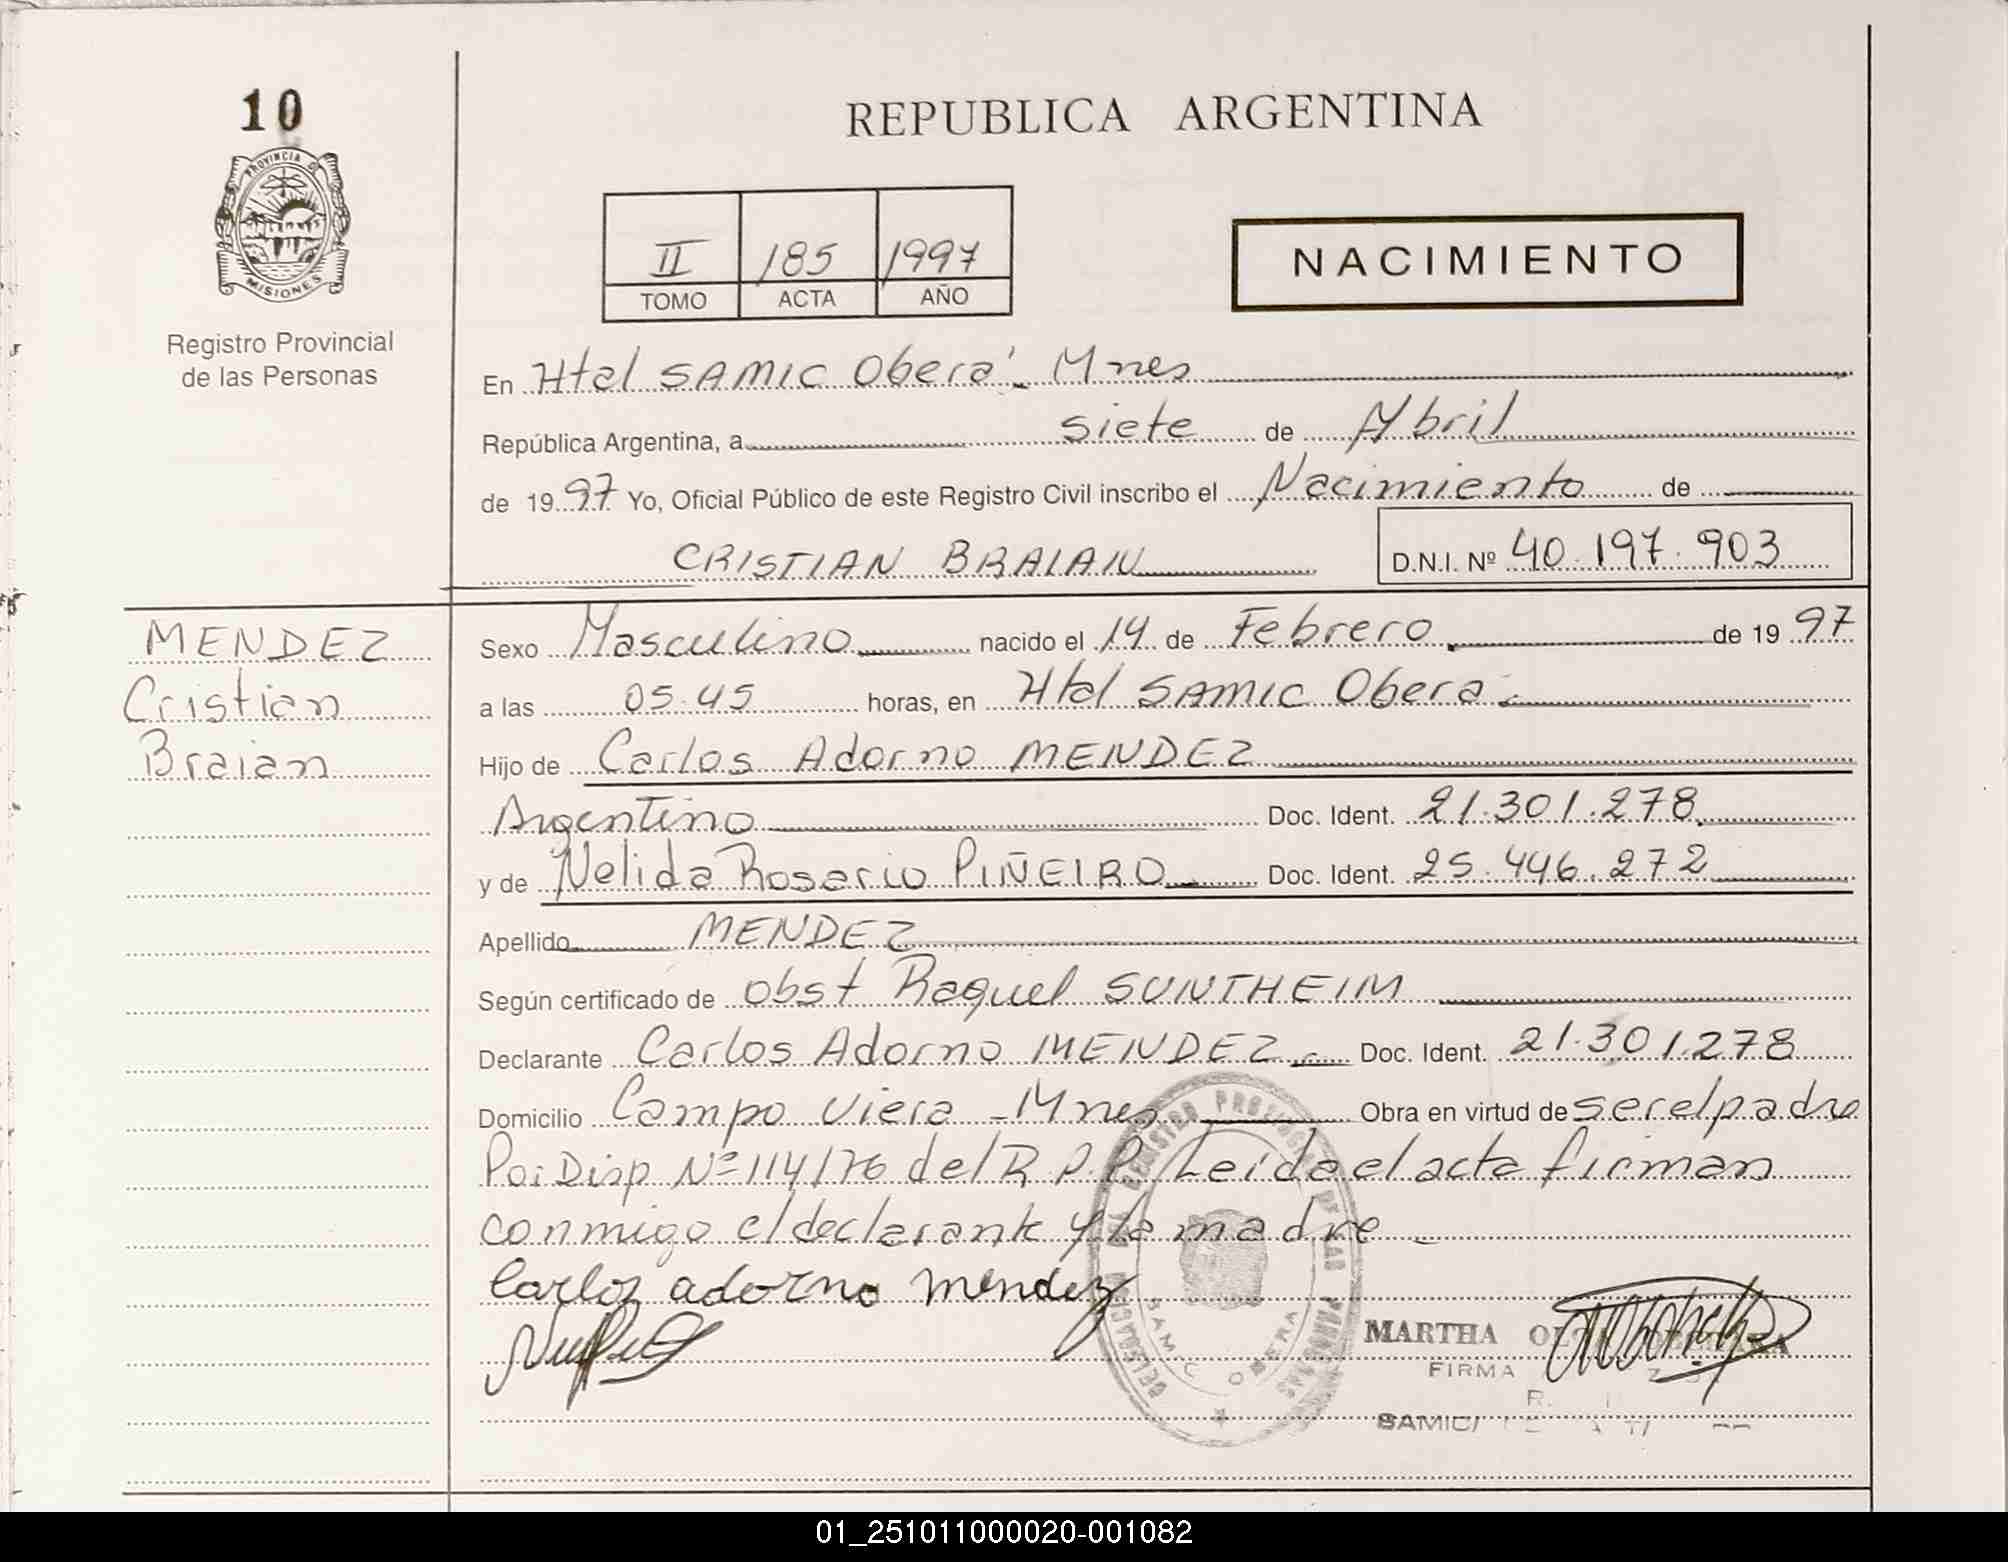 10
REPUBLICA ARGENTINA
PROVINCIA D
MISIONES
Registro Provincial
de las Personas
II 185 1997
TOMO ACTA AÑO
NACIMIENTO
En Htal SAMIC Oberá - Mnes
República Argentina, a siete de Abril
de 1997 Yo, Oficial Público de este Registro Civil inscribo el Nacimiento de
CRISTIAN BRAIAN D.N.I. Nº 40.197.903
MENDEZ
Cristian
Braian
Sexo Masculino nacido el 14 de Febrero de 1997
a las 05.45 horas, en Htal SAMIC Oberá
Hijo de Carlos Adorno MENDEZ
Argentino Doc. Ident. 21.301.278
y de Nelida Rosario PIÑEIRO Doc. Ident. 25.446.272
Apellido MENDEZ
Según certificado de obst Raquel SUNTHEIM
Declarante Carlos Adorno MENDEZ Doc. Ident. 21.301.278
Domicilio Campo Viera - Mnes Obra en virtud de ser el padre
Por Disp Nº 114/76 del R.P.P. Leida el acta firman
conmigo el declarante y la madre
Carlos adorno mendez
MARTHA
FIRMA
SAMIC
SAMIC OBERA
01_251011000020-001082